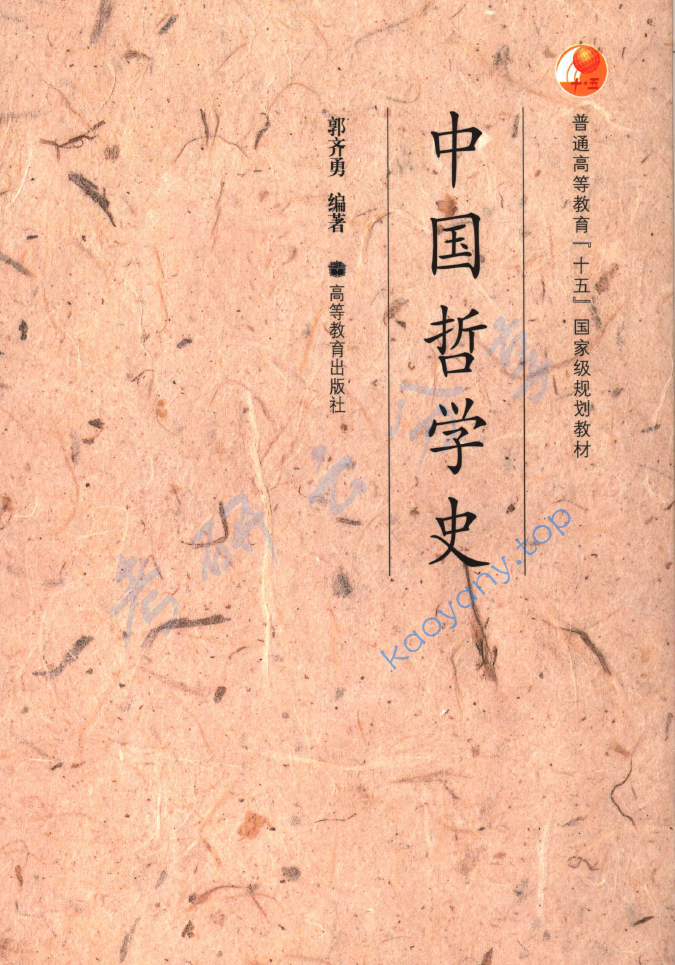 十·五
普通高等教育『十五』国家级规划教材
中国哲学史
郭齐勇 编著
高等教育出版社
kaoyany.top